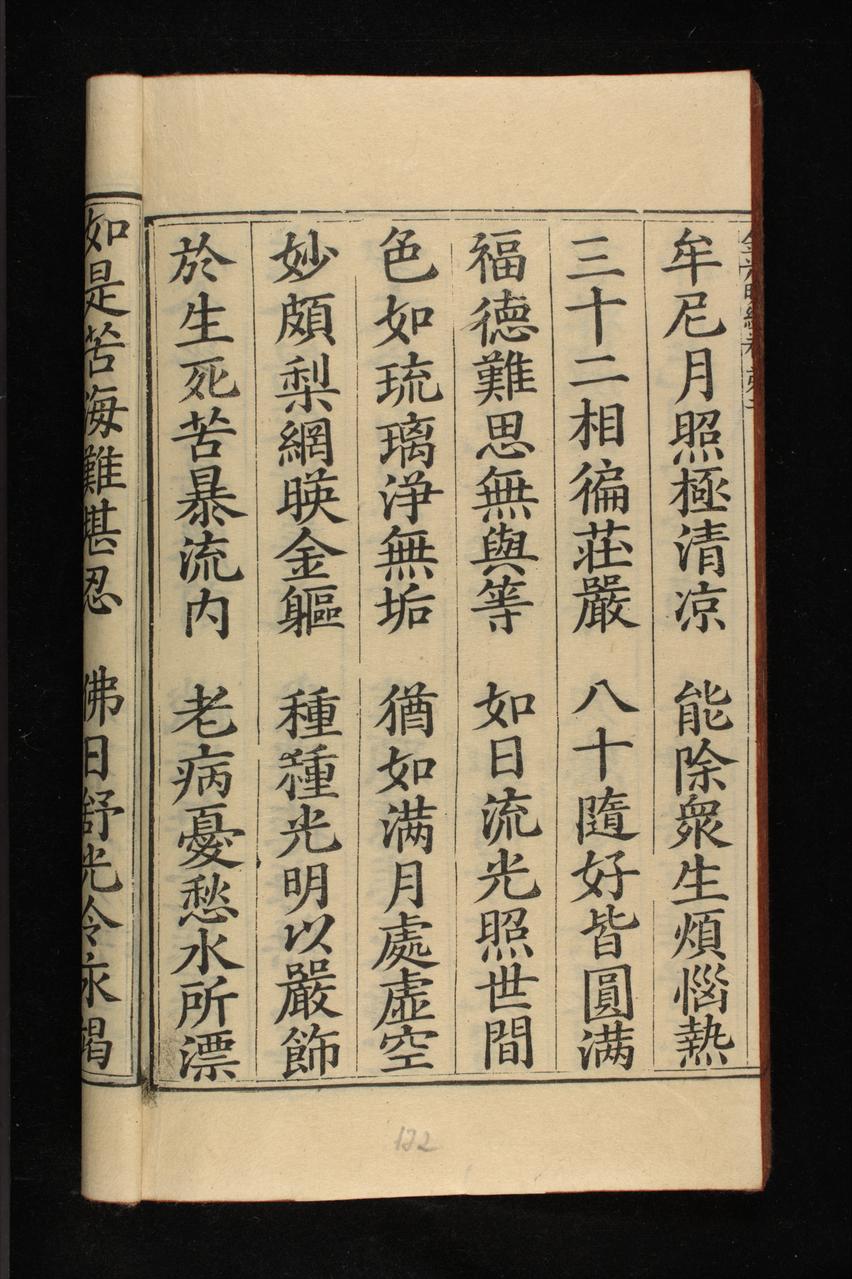 牟尼月照極清凉　能除衆生煩惱熱
三十二相徧莊嚴　八十隨好皆圓满
福德難思無與等　如日流光照世間
色如琉璃淨無垢　猶如满月處虛空
妙頗梨網暎金軀　種種光明以嚴飾
於生死苦暴流内　老病憂愁水所漂
如是苦海難堪忍　佛日舒光令永竭
122